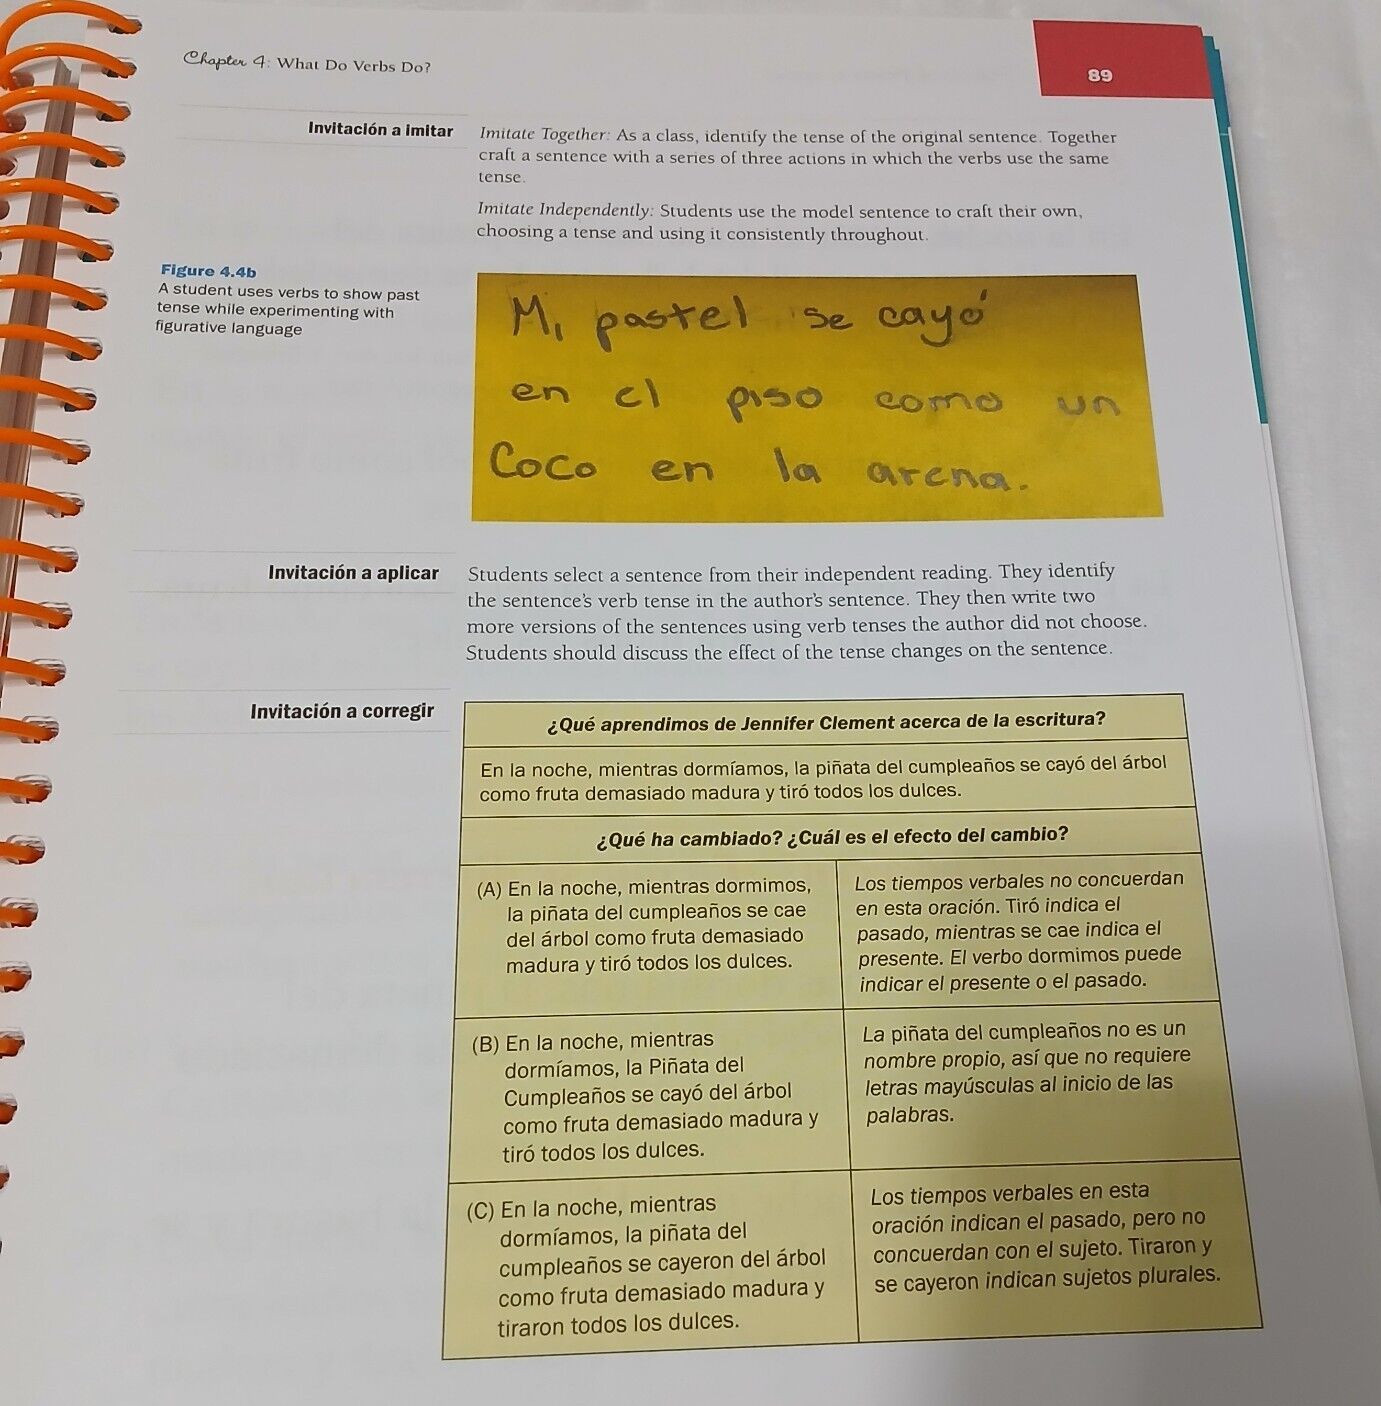 Chapter 4: What Do Verbs Do?
89
Invitación a imitar
Imitate Together: As a class, identify the tense of the original sentence. Together
craft a sentence with a series of three actions in which the verbs use the same
tense.
Imitate Independently: Students use the model sentence to craft their own,
choosing a tense and using it consistently throughout.
Figure 4.4b
A student uses verbs to show past
tense while experimenting with
figurative language
Mi pastel se cayó
en el piso como un
Coco en la arena.
Invitación a aplicar
Students select a sentence from their independent reading. They identify
the sentence's verb tense in the author's sentence. They then write two
more versions of the sentences using verb tenses the author did not choose.
Students should discuss the effect of the tense changes on the sentence.
Invitación a corregir
¿Qué aprendimos de Jennifer Clement acerca de la escritura?
En la noche, mientras dormíamos, la piñata del cumpleaños se cayó del árbol
como fruta demasiado madura y tiró todos los dulces.
¿Qué ha cambiado? ¿Cuál es el efecto del cambio?
(A) En la noche, mientras dormimos,
la piñata del cumpleaños se cae
del árbol como fruta demasiado
madura y tiró todos los dulces.
Los tiempos verbales no concuerdan
en esta oración. Tiró indica el
pasado, mientras se cae indica el
presente. El verbo dormimos puede
indicar el presente o el pasado.
(B) En la noche, mientras
dormíamos, la Piñata del
Cumpleaños se cayó del árbol
como fruta demasiado madura y
tiró todos los dulces.
La piñata del cumpleaños no es un
nombre propio, así que no requiere
letras mayúsculas al inicio de las
palabras.
(C) En la noche, mientras
dormíamos, la piñata del
cumpleaños se cayeron del árbol
como fruta demasiado madura y
tiraron todos los dulces.
Los tiempos verbales en esta
oración indican el pasado, pero no
concuerdan con el sujeto. Tiraron y
se cayeron indican sujetos plurales.